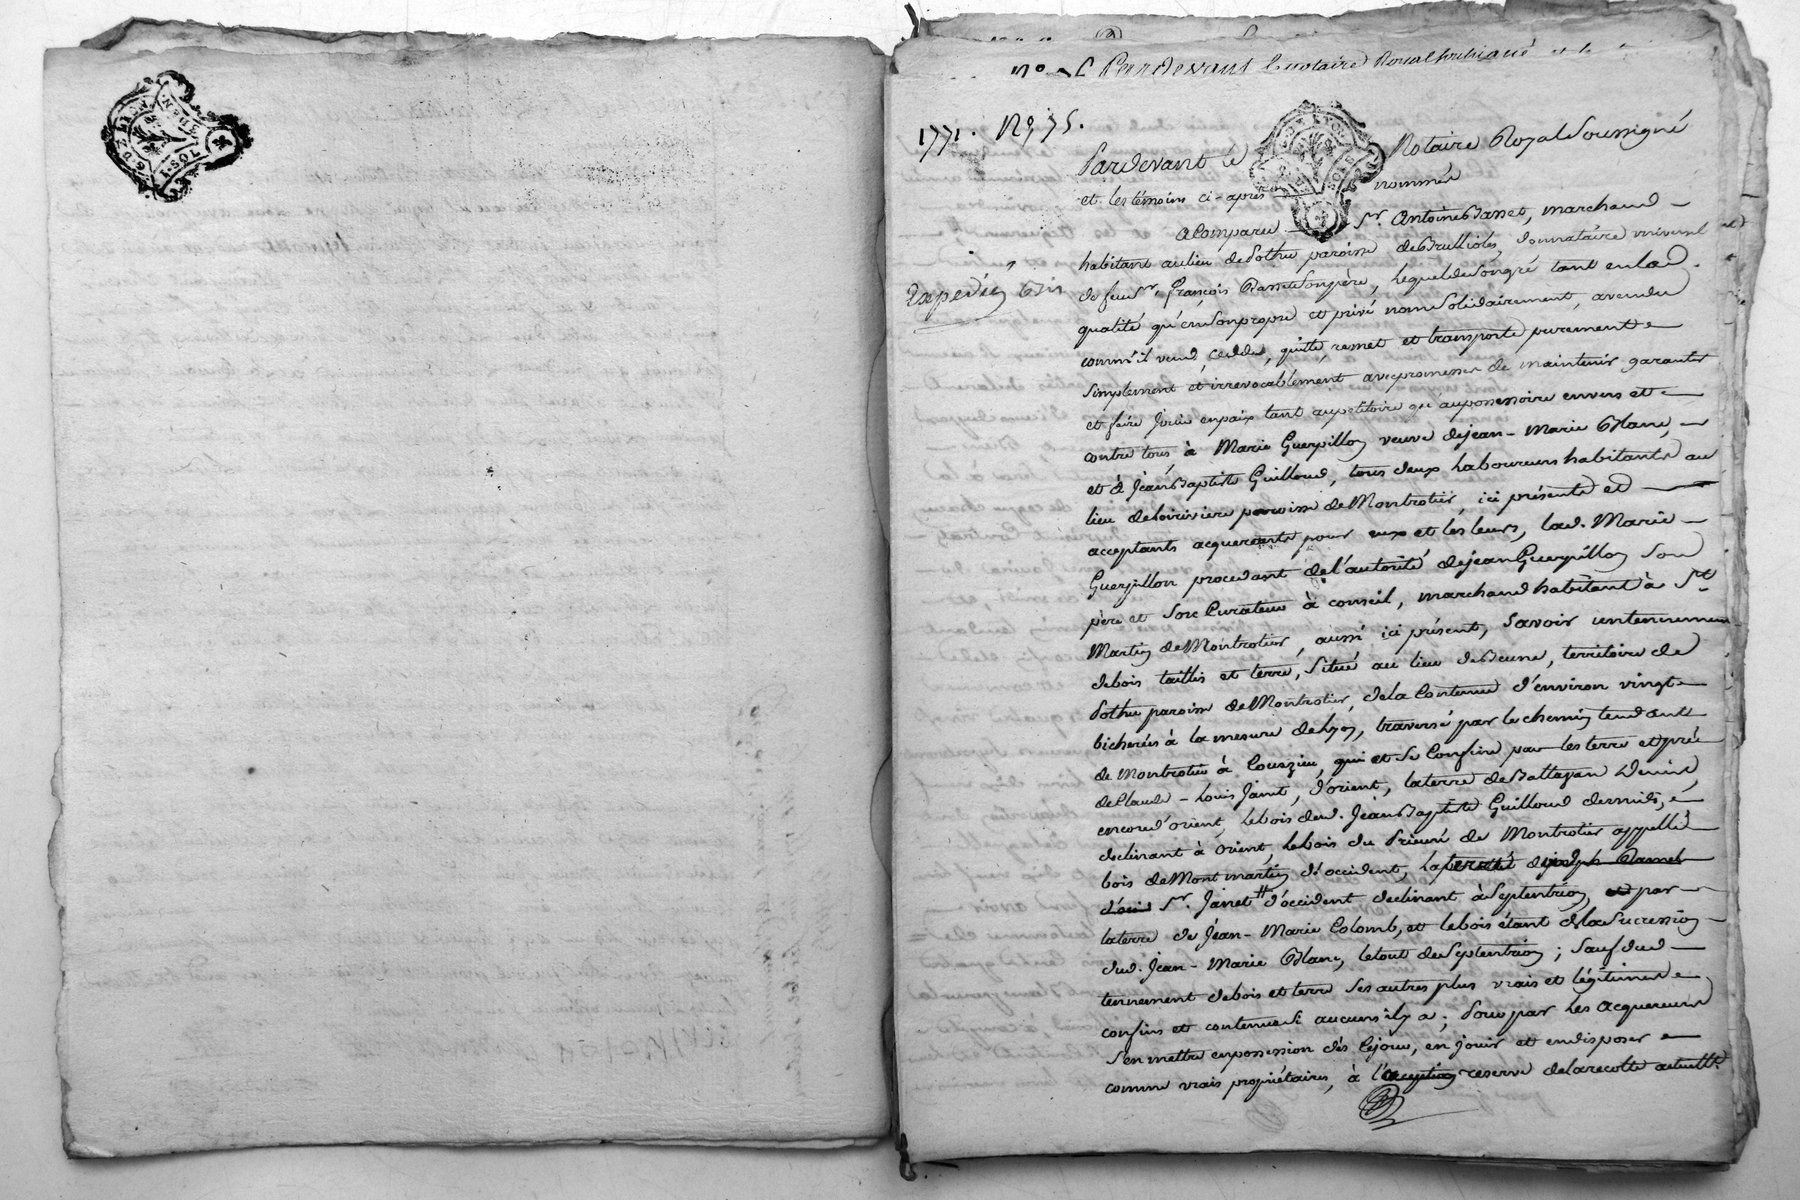 Pardevant le notaire Royal soussigné et le
1771. No. 75.
Pardevant le Notaire Royal Soussigné
et les témoins ci-après nommés
a Comparu Sr. Antoine Basset, marchand
habitant au lieu de Pothu paroisse de Brulliolés, donnataire universel
Expedié
de feu Sr. François Basset son père, lequel de son gré tant en lad.
qualité qu'en son propre et privé nom solidairement, a vendu
comm'il vend, cedde, quitte, remet et transporte purement
simplement et irrevocablement avec promesses de maintenir garantir
et faire jouir en paix tant au petitoire qu'au possessoire envers et
contre tous à Marie Guerpillon veuve de jean-Marie Blanc,
et à Jean Baptiste Guilloud, tous deux laboureurs habitants au
lieu de paroisse de Montrotier ici présents et
acceptants acquerants pour eux et les leurs, lad. Marie
Guerpillon procedant de l'autorité de jean Guerpillon son
père et son Curateur à conseil, marchand habitant à St.
Martin de Montrotier, aussi ici présent, Savoir un tennement
de bois taillis et terre, Situé au lieu de, territoire de
Pothu paroisse de Montrotier, de la Contenue d'environ vingt
bicherées à la mesure de Lyon, traversé par le chemin tendant
de Montrotier à Courzieu, qui et se Confine par les terre et pré
de Claude-Louis Janit, d'orient, la terre de
encore d'orient, le bois dud. Jean Baptiste Guilloud de midi,
declinant à Orient, le bois du Prieuré de Montrotier appellé
bois de Montmartin d'occident, la de joseph
Sr. Janet # d'occident declinant à Septentrion, et par
la terre de Jean-Marie Colomb, et le bois étant de la Succession
dud. Jean-Marie Blanc, le tout de Septentrion; sauf dud.
tennement de bois et terre ses autres plus vrais et légitimes
confins et contenue si aucuns il y a; Pour par les Acquereurs
s'en mettre en possession dès ce jour, en jouir et en disposer
comme vrais propriétaires, à l'exception reserve de la recolte actuelle.